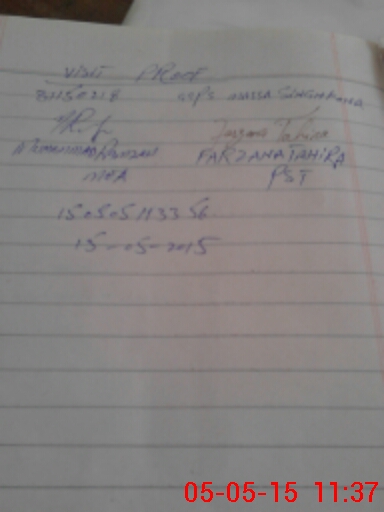 VISIT PROOF
37150218 GGPS MASSA SINGH WALA
Farzana Tahira
Muhammad Ramzan FARZANA TAHIRA
MEA PST
15 05 05 113356
15-05-2015
05-05-15 11:37